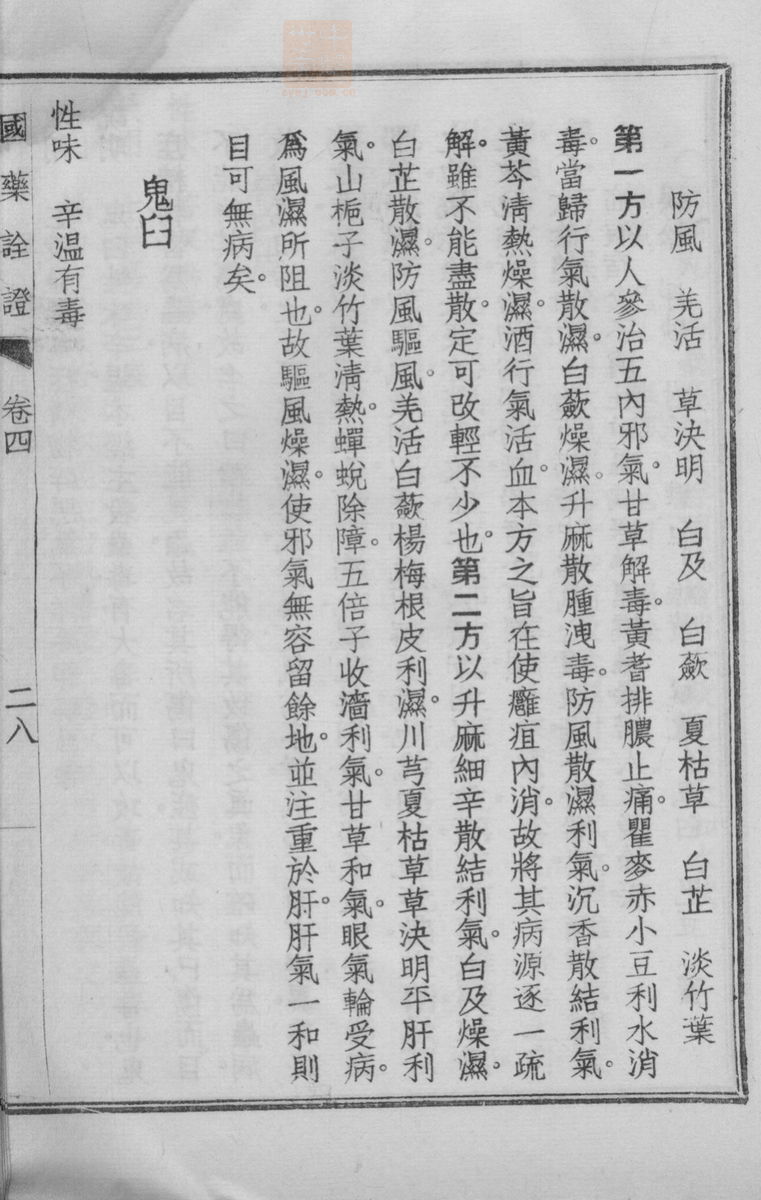 防風　羌活　草決明　白及　白蘞　夏枯草　白芷　淡竹葉
第一方以人參治五內邪氣。甘草解毒。黃耆排膿止痛。瞿麥赤小豆利水消
毒。當歸行氣散濕。白蘞燥濕。升麻散腫洩毒。防風散濕利氣。沉香散結利氣。
黃芩清熱燥濕。酒行氣活血。本方之旨在使癰疽內消。故將其病源逐一疏
解。雖不能盡散。定可改輕不少也。第二方以升麻細辛散結利氣。白及燥濕。
白芷散濕。防風驅風。羌活白蘞楊梅根皮利濕。川芎夏枯草草決明平肝利
氣。山梔子淡竹葉清熱。蟬蛻除障。五倍子收濇利氣。甘草和氣。眼氣輪受病。
爲風濕所阻也。故驅風燥濕。使邪氣無容留餘地。並注重於肝。肝氣一和則
目可無病矣。
鬼臼
性味　辛溫有毒
國藥詮證　卷四　二八